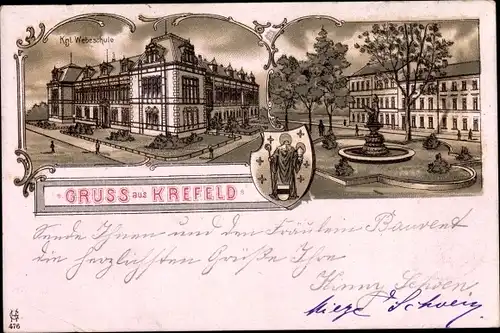 Kgl. Webeschule
GRUSS aus KREFELD
Sende Ihnen und den Fräulein Bauvent
die herzlichsten Grüße Ihre
Schoen
Schwein
476